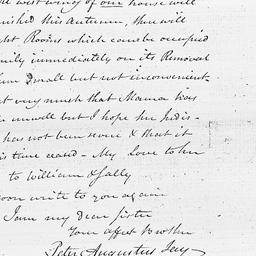 west wing of our house will
nished this Autumn, there will
ht Rooms which can be occupied
mily immediately on its Removal
small but not inconvenient
t very much that Mama has
n unwell but I hope her Indis-
has not been severe & that it
is time ceased - My Love to her
to William & Sally
oon write to you again
I am my dear sister
Your affect Brother
Peter Augustus Jay